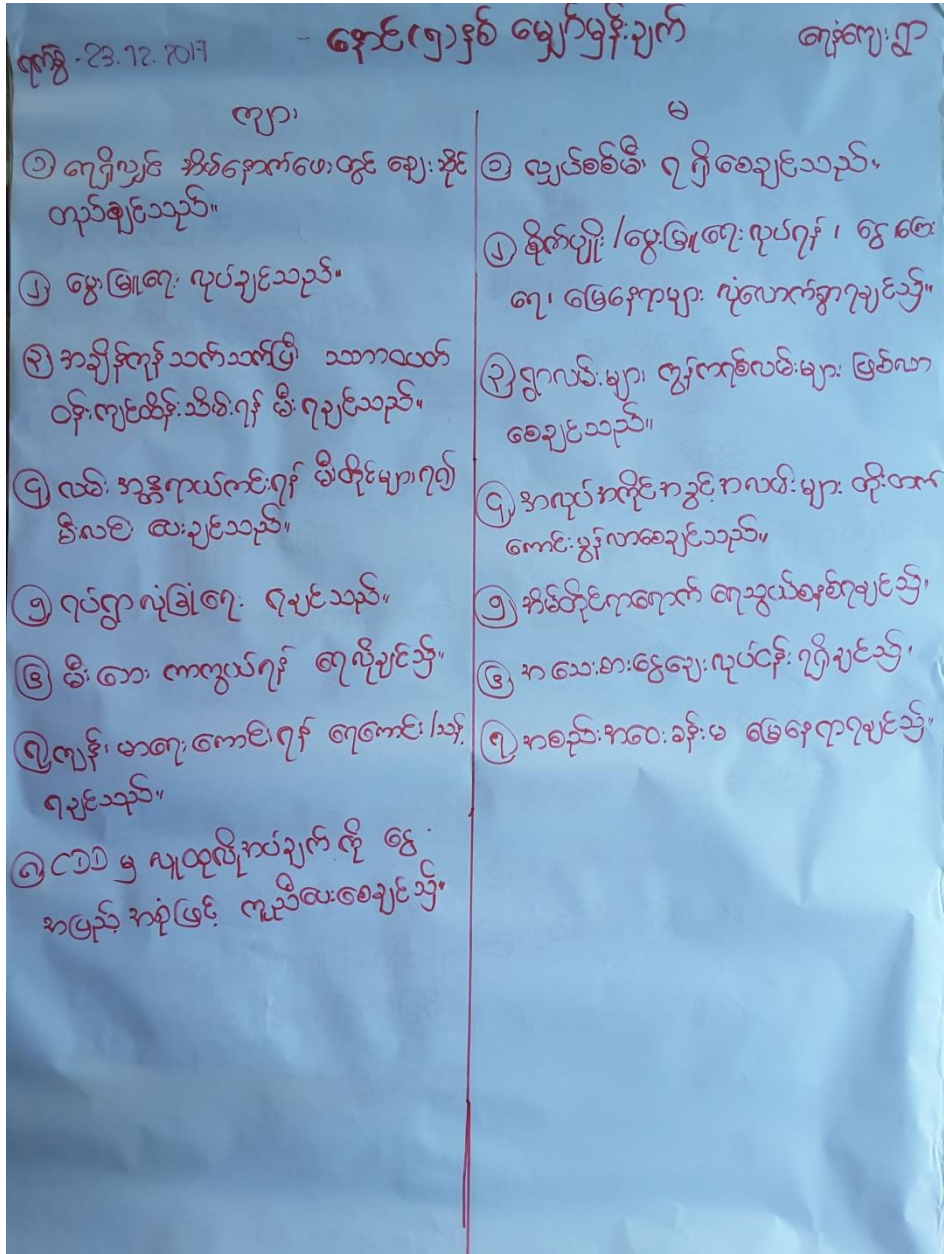 ရက်စွဲ - 23.12.2017
- နောင်(၅)နှစ် မျှော်မှန်းချက်
ရေနံကျေးရွာ
ကျား
၁ ရေရှိလျှင် အိမ်နောက်ဖေးတွင် ဈေးဆိုင်
တည်ချင်သည်။
၂ မွေးမြူရေး လုပ်ချင်သည်။
၃ အချိန်ကုန်သက်သာပြီး သဘာဝပတ်
ဝန်းကျင်ထိန်းသိမ်းရန် မီးရချင်သည်။
၄ လမ်းအန္တရာယ်ကင်းရန် မီးတိုင်များရ၍
မီးလင်းပေးချင်သည်။
၅ ရပ်ရွာလုံခြုံရေး ရချင်သည်။
၆ မီးဘေးကာကွယ်ရန် ရေလိုချင်သည်။
၇ ကျန်းမာရေးကောင်းရန် ရေကောင်း/သန့်
ရချင်သည်။
၈ CDD မှ လူထုလိုအပ်ချက်ကို ငွေ
အပြည့်အစုံဖြင့် ကူညီပေးစေချင်သည်။
မ
၁ လျှပ်စစ်မီး ရရှိစေချင်သည်။
၂ စိုက်ပျိုး/မွေးမြူရေးလုပ်ရန်၊ ငွေကြေး
ရေ၊ မြေနေရာများ လုံလောက်စွာရချင်သည်။
၃ ရွာလမ်းများ ကွန်ကရစ်လမ်းများ ဖြစ်လာ
စေချင်သည်။
၄ အလုပ်အကိုင်အခွင့်အလမ်းများ တိုးတက်
ကောင်းမွန်လာစေချင်သည်။
၅ အိမ်တိုင်ရာရောက် ရေသွယ်စနစ်ရချင်သည်။
၆ အသေးစားငွေချေးလုပ်ငန်း ရရှိချင်သည်။
၇ အစည်းအဝေးခန်းမ မြေနေရာရချင်သည်။